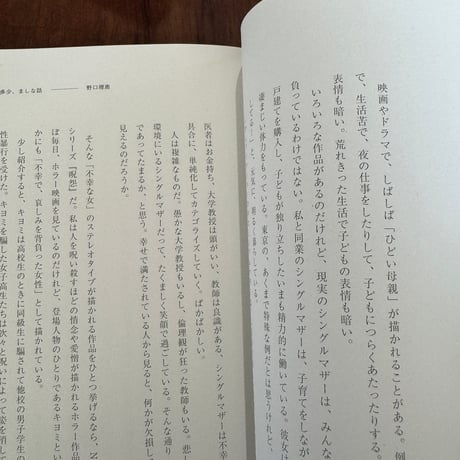 映画やドラマで、しばしば「ひどい母親」が描かれることがある。例
で、生活苦で、夜の仕事をしたりして、子どもにつらくあたったりする。
表情も暗い。荒れきった生活で子どもの表情も暗い。
いろいろな作品があるのだけれど、現実のシングルマザーは、みんな
負っているわけではない。私と同業のシングルマザーは、子育てをしなが
戸建てを購入し、子どもが独り立ちしたいまも精力的に働いている。彼女は
凄まじい体力をもっている。東京の、あくまで特殊な例だとは思うけれど、
多少、ましな話 ─── 野口理恵
医者はお金持ち、大学教授は頭がいい、教師は良識がある、シングルマザーは不幸
具合に、単純化してカテゴライズしていく。ばかばかしい。
人は複雑なものだ。愚かな大学教授もいるし、倫理観が狂った教師もいる。悲し
環境にいるシングルマザーだって、たくましく笑顔で過ごしている。そんな通り
であってたまるか、と思う。幸せで満たされている人から見ると、何かが欠損して
見えるのだろうか。
そんな「不幸な女」のステレオタイプが描かれる作品をひとつ挙げるなら、N
シリーズ『呪怨』だ。人を呪い殺すほどの情念や愛憎が描かれるホラー作品
ぼ毎日、ホラー映画を見ているのだけれど、登場人物のひとりであるキヨミとい
かにも「不幸で、哀しみを背負った女性」として描かれている。
少し紹介すると、キヨミは高校生のときに同級生に騙されて他校の男子学生の
性暴行を受けた。キヨミを騙した女子高生たちは次々と呪いによって姿を消して